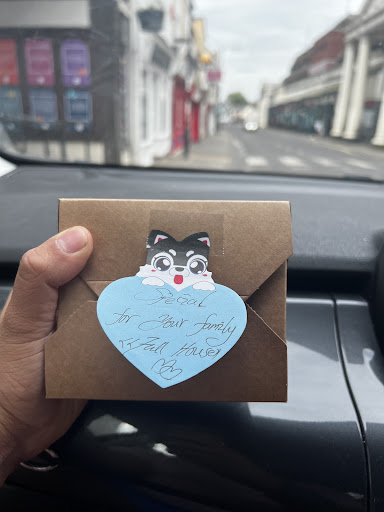 Special
for Your family
Full House